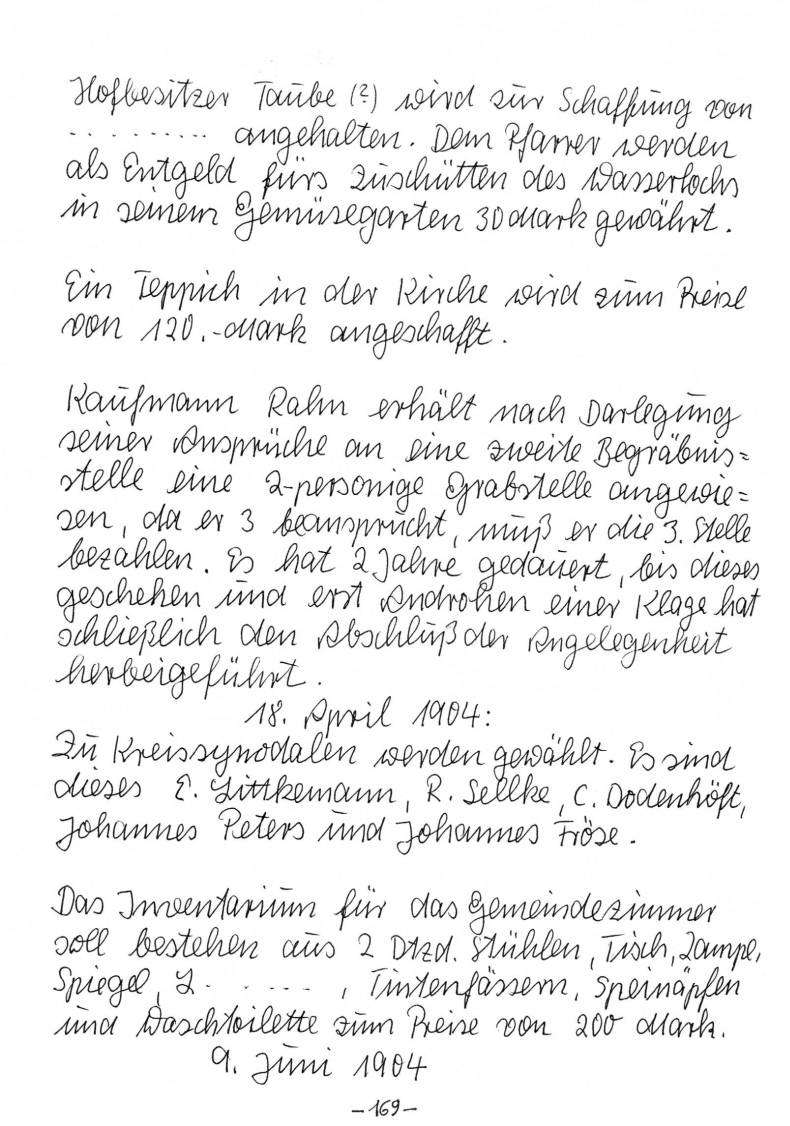 Hofbesitzer Taube (?) wird zur Schaffung von
. . . . . . . . . angehalten. Dem Pfarrer werden
als Entgeld fürs Zuschütten des Wasserlochs
in seinem Gemüsegarten 30 Mark gewährt.
Ein Teppich in der Kirche wird zum Preise
von 120.-Mark angeschafft.
Kaufmann Rahn erhält nach Darlegung
seiner Ansprüche an eine zweite Begräbnis=
stelle eine 2-personige Grabstelle angewie=
sen, da er 3 beansprucht, muß er die 3. Stelle
bezahlen. Es hat 2 Jahre gedauert, bis dieses
geschehen und erst Androhen einer Klage hat
schließlich den Abschluß der Angelegenheit
herbeigeführt.
18. April 1904:
Zu Kreissynodalen werden gewählt. Es sind
dieses E. Littkemann, R. Sellke, C. Dodenhöft,
Johannes Peters und Johannes Fröse.
Das Inventarium für das Gemeindezimmer
soll bestehen aus 2 Dtzd. Stühlen, Tisch, Lampe,
Spiegel, 2 . . . . . ., Tintenfässern, Speinäpfen
und Waschtoilette zum Preise von 200 Mark.
9. Juni 1904
-169-